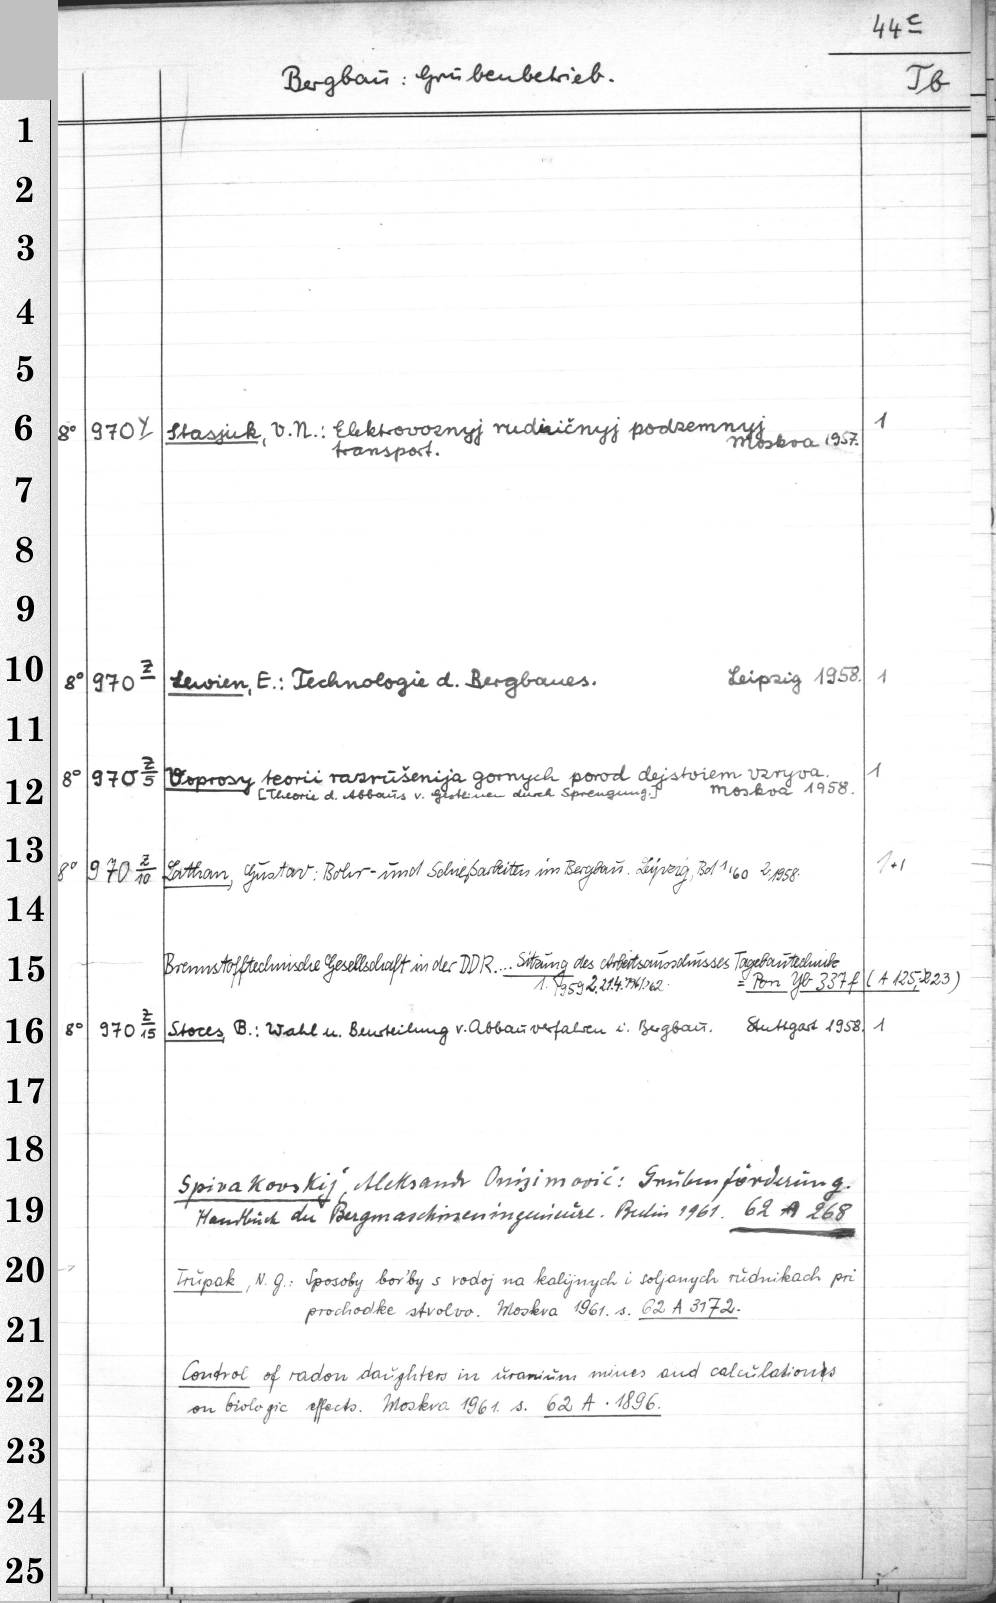 44c
Tb
Bergbau: Grubenbetrieb.
1
2
3
4
5
6 8° 970 Y Stasjuk, V.N.: Elektrovoznyj rudničnyj podzemnyj 1
transport. Moskva 1957.
7
8
9
10 8° 970 Z Lewien, E.: Technologie d. Bergbaues. Leipzig 1958. 1
11
12 8° 970 Z/5 Voprosy teorii razrušenija gornych porod dejstviem vzryva. 1
[Theorie d. Abbaus v. Gesteinen durch Sprengung.] Moskva 1958.
13 8° 970 Z/10 Lathan, Gustav: Bohr- und Schießarbeiten im Bergbau. Leipzig, Bd 1,1960 2,1958. 1+1
14
15 Brennstofftechnische Gesellschaft in der DDR.... Sitzung des Arbeitsausschusses Tagebautechnik
1. 1959 2. 21.4. = Pon Yb 337f (A 125, 223)
16 8° 970 Z/15 Stoces, B.: Wahl u. Beurteilung v. Abbauverfahren i. Bergbau. Stuttgart 1958. 1
17
18
Spivakovskij, Aleksandr Onisimovič: Grubenförderung.
19 Handbuch der Bergmaschineningenieure. Berlin 1961. 62 A 268
20 Trupak, N.G.: Sposoby bor'by s vodoj na kalijnych i soljanych rudnikach pri
prochodke stvolov. Moskva 1961. s. 62 A 3172.
21
Control of radon daughters in uranium mines and calculations
22 on biologic effects. Moskva 1961. s. 62 A · 1896.
23
24
25